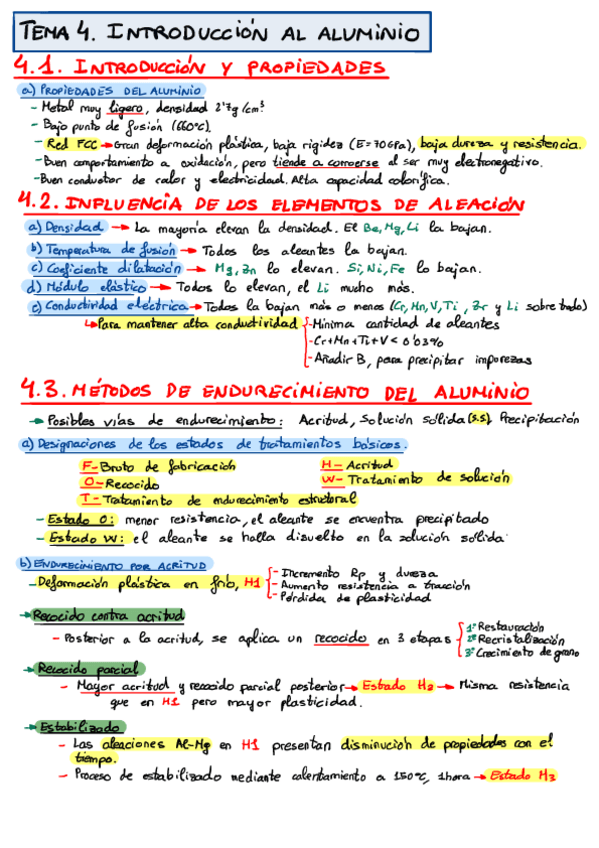 TEMA 4. INTRODUCCIÓN AL ALUMINIO
4.1. INTRODUCCIÓN Y PROPIEDADES
a) PROPIEDADES DEL ALUMINIO
- Metal muy ligero, densidad 2'7g/cm³
- Bajo punto de fusión (660ºC).
- Red FCC → Gran deformación plástica, baja rigidez (E=70GPa), baja dureza y resistencia.
- Buen comportamiento a oxidación, pero tiende a corroerse al ser muy electronegativo.
- Buen conductor de calor y electricidad. Alta capacidad calorífica.
4.2. INFLUENCIA DE LOS ELEMENTOS DE ALEACIÓN
a) Densidad → La mayoría elevan la densidad. El Be, Mg, Li la bajan.
b) Temperatura de fusión → Todos los aleantes la bajan.
c) Coeficiente dilatación → Mg, Zn lo elevan. Si, Ni, Fe lo bajan.
d) Módulo elástico → Todos lo elevan, el Li mucho más.
e) Conductividad eléctrica → Todos la bajan más o menos (Cr, Mn, V, Ti, Zr y Li sobre todo)
↳ Para mantener alta conductividad { - Mínima cantidad de aleantes
- Cr+Mn+Ti+V < 0'03%
- Añadir B, para precipitar impurezas
4.3. MÉTODOS DE ENDURECIMIENTO DEL ALUMINIO
→ Posibles vías de endurecimiento: Acritud, Solución sólida (s.s), Precipitación
a) Designaciones de los estados de tratamientos básicos.
F- Bruto de fabricación H- Acritud
O- Recocido W- Tratamiento de solución
T- Tratamiento de endurecimiento estructural
- Estado O: menor resistencia, el aleante se encuentra precipitado
- Estado W: el aleante se halla disuelto en la solución sólida
b) ENDURECIMIENTO POR ACRITUD
- Deformación plástica en frío, H1 { - Incremento Rp y dureza
- Aumento resistencia a tracción
- Pérdida de plasticidad
→ Recocido contra acritud
- Posterior a la acritud, se aplica un recocido en 3 etapas { 1º Restauración
2º Recristalización
3º Crecimiento de grano
→ Recocido parcial
- Mayor acritud y recocido parcial posterior → Estado H2 → Misma resistencia
que en H1 pero mayor plasticidad.
→ Estabilizado
- Las aleaciones Al-Mg en H1 presentan disminución de propiedades con el
tiempo.
- Proceso de estabilizado mediante calentamiento a 150ºC, 1hora → Estado H3